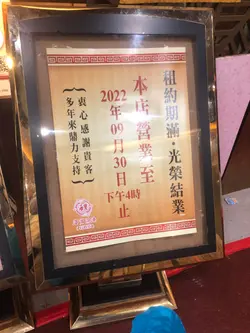 租約期滿·光榮結業
本店營業至
2022年09月30日
下午4時
止
衷心感謝貴客
多年來鼎力支持